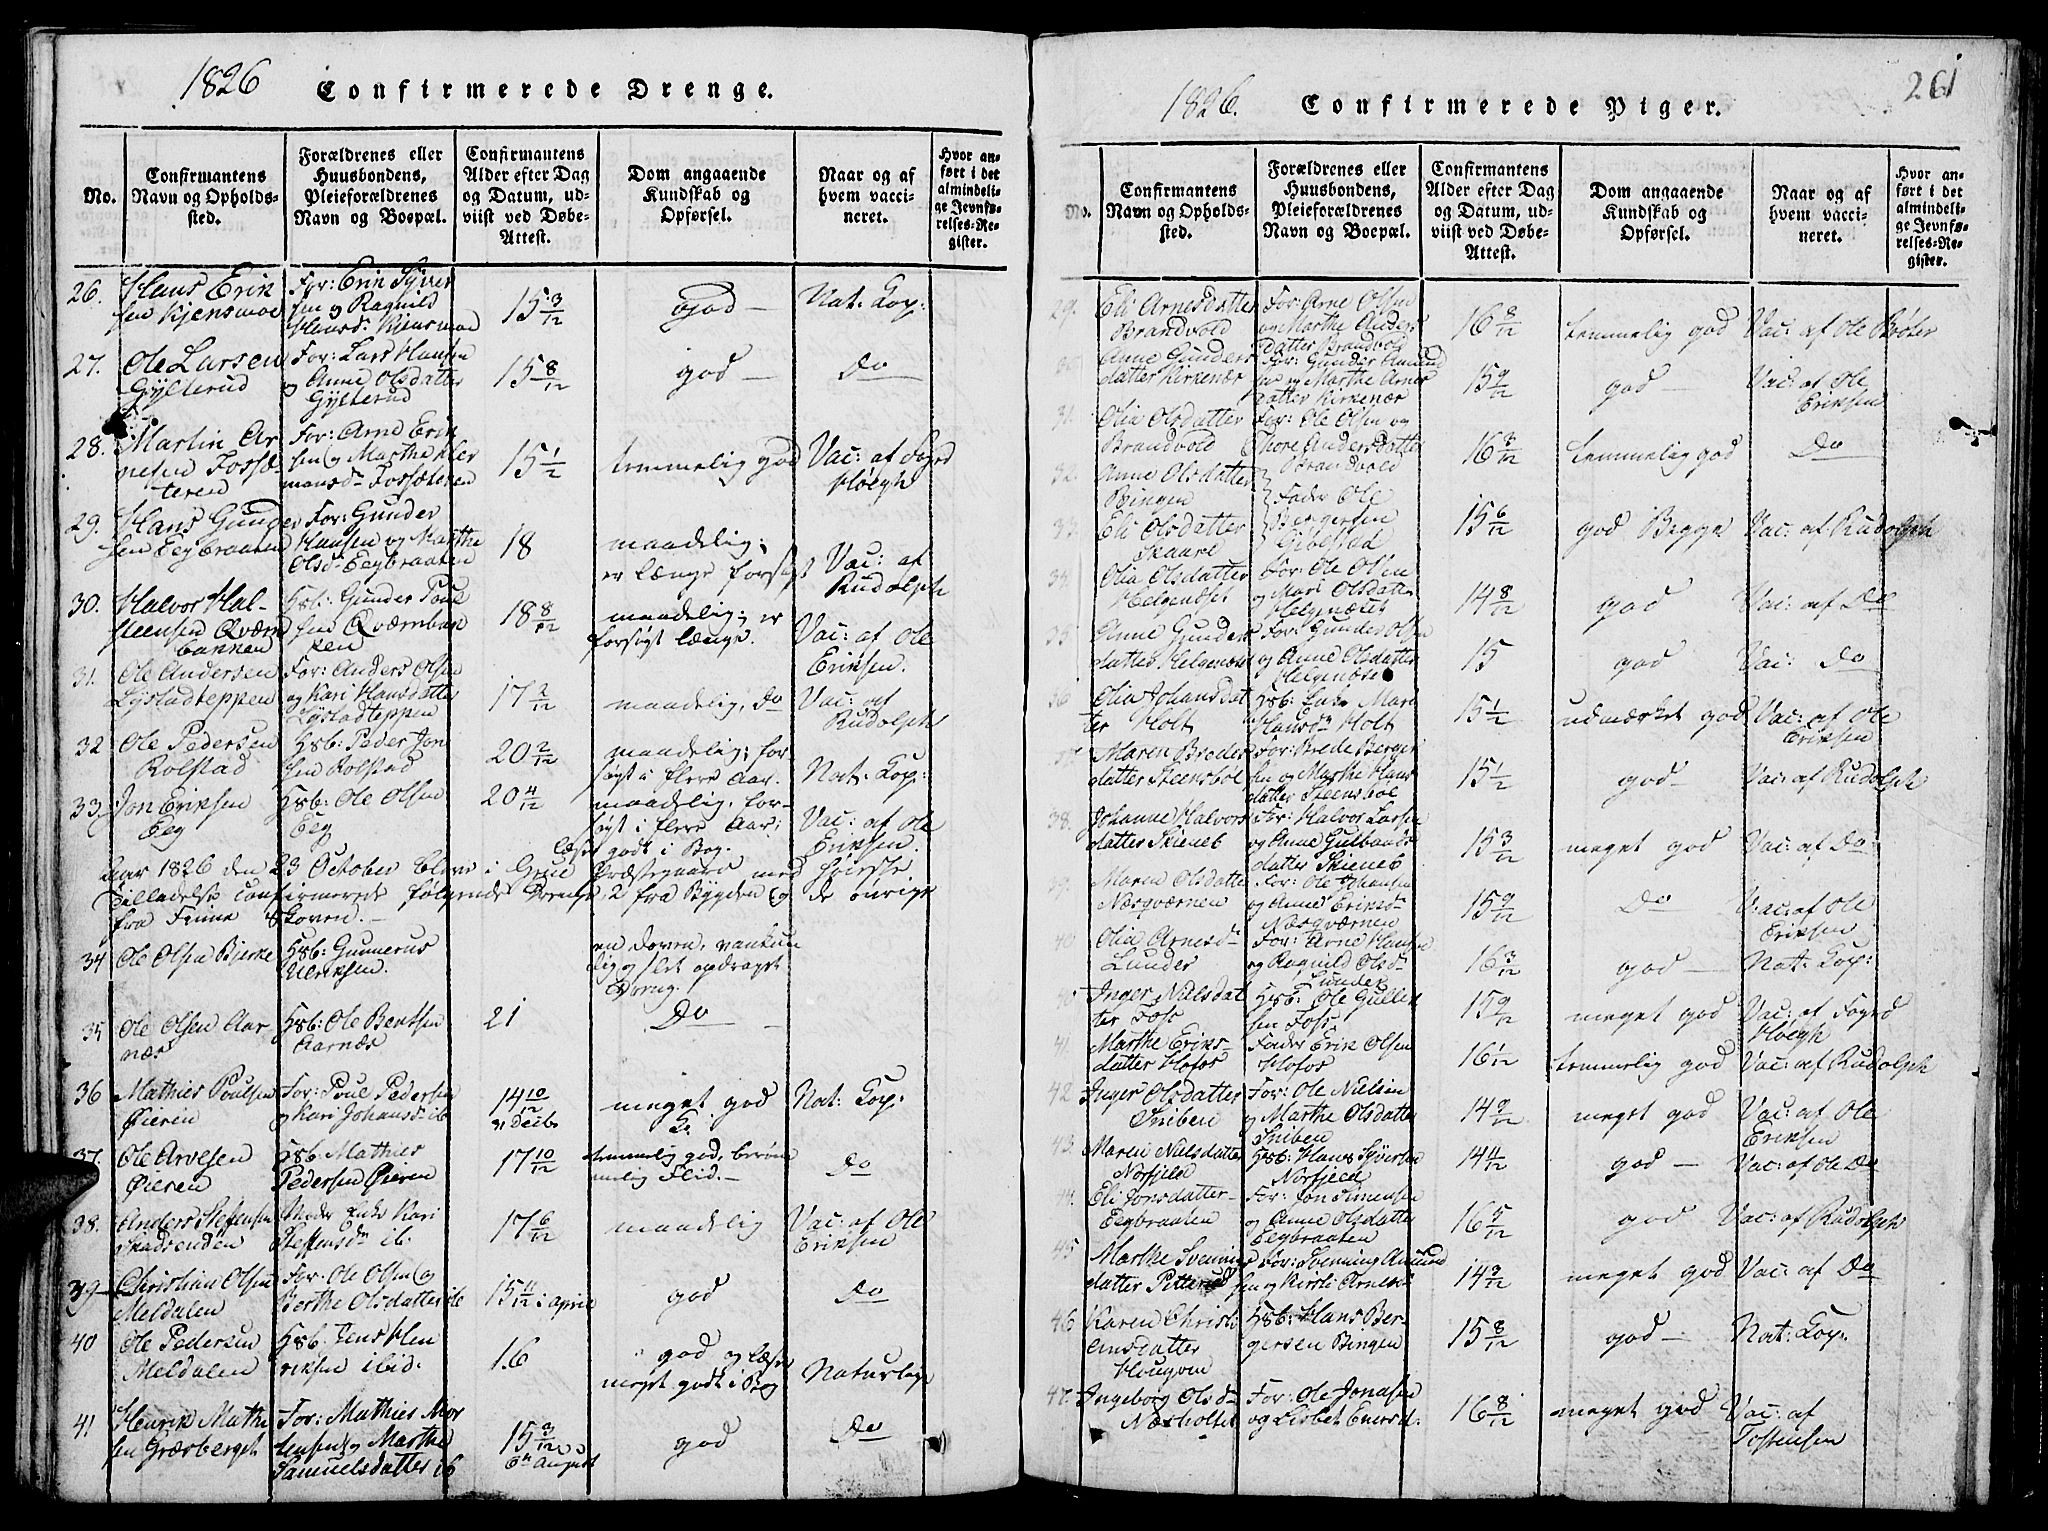 1826 Confirmerede Drenge.
No.
Confirmantens
Navn og Opholds-
sted.
Forældrenes eller
Huusbondens,
Pleieforældrenes
Navn og Boepæl.
Confirmantens
Alder efter Dag
og Datum, ud-
viist ved Døbe-
Attest.
Dom angaaende
Kundskab og
Opførsel.
Naar og af
hvem vacci-
neret.
Hvor an-
ført i det
almindeli-
ge Jevnfø-
relses-Re-
gister.
26. Hans Erik
sen Kjensmoe
For: Erik Syver
sen og Ragnild
Hansd: Kjensmoe
15 3/12
god —
Nat: Kop:
27. Ole Larsen
Gylterud
For: Lars Hansen
og Anne Olsdatter
Gylterud
15 8/12
god —
Do
28. Martin Ar
nesen Fossæ
teren
For: Arne Erik
sen og Marthe Her
mansd: Fossæteren
15 1/12
temmelig god
Vac: af Foged
Høegh
29. Hans Gunder
sen Eegbraaten
For: Gunder
Hansen og Marthe
Olsd: Eegbraaten
18
maadelig;
er længe forsøgt
Vac: af
Rudolph
30. Halvor Hal-
steensen Qværn
bakken
Hsb: Gunder Poul
sen Qværnbak
ken
18 8/12
maadelig; er
forsøgt længe.
Vac: af Ole
Eriksen.
31. Ole Andersen
Lystadteppen
For: Anders Olsen
og Kari Hansdatter
Lystadteppen
17 2/12
maadelig, Do
Vac: af
Rudolph
32 Ole Pedersen
Rolstad
Hsb: Peder Jon
sen Rolstad
20 2/12
maadelig; for
søgt i flere Aar.
Nat: Kop:
33. Jon Eriksen
Eeg
Hsb: Ole Olsen
Eeg
20 4/12
maadelig, for-
søgt i flere Aar;
læser godt i Bog.
Vac: af Ole
Eriksen.
Aar 1826 den 23 October bleve i Grue Præstegaard med høieste
Tilladelse confirmerede følgende Drenge, 2 fra Bygden og de øvrige
fra Finne Skoven. —
34 Ole Olsen Bjerke
Hsb: Gunnerus
Ulriksen.
en doven, vankun
dig og slet opdraget
35 Ole Olsen Aar-
næs
Hsb: Ole Bentsen
Aarnæs
21
Do
36 Mathies Poulsen
Øieren
For: Poul Pedersen
og Kari Johansd: ib
14 10/12
meget god
Nat: Kop:
37. Ole Arvesen
Øieren
Hsb: Mathies
Pedersen Øieren
17 10/12
temmelig god, berøm
melig Flid. —
Do
38. Anders Steffensen
Skadsenden
Moder Enke Kari
Steffensdr ib.
17 6/12
maadelig
Vac: af Ole
Eriksen
39 Christian Olsen
Meldalen
For: Ole Olsen og
Berthe Olsdatter ib
15 4/12 i April
god
Do
40 Ole Pedersen
Meldalen
Hsb: Jens Hen
riksen ibid:
16
god og læser
meget godt i Bog
Naturlige
41 Henrik Mathi
sen Græsberget
For: Mathies Mor
tensen og Marthe
Samuelsdatter ib
15 3/12
6te August
god
Do
1826. Confirmerede Piger. 261
No.
Confirmantens
Navn og Opholds-
sted.
Forældrenes eller
Huusbondens,
Pleieforældrenes
Navn og Boepæl.
Confirmantens
Alder efter Dag
og Datum, ud-
viist ved Døbe-
Attest.
Dom angaaende
Kundskab og
Opførsel.
Naar og af
hvem vacci-
neret.
Hvor an-
ført i det
almindeli-
ge Jevnfø-
relses-Re-
gister.
29. Eli Arnesdatter
Brandvold
For: Arne Olsen
og Marthe Anders
datter Brandvold
16 8/12
temmelig god
Vac: af Ole Bøter
30. Anne Gunders
datter Kirkenær
For: Gunder Amund
sen og Marthe Arnes
datter Kirkenær
15 9/12
god —
Vac: af Ole
Eriksen
31. Olia Olsdatter
Brandvold
For: Ole Olsen og
Thore Andersdatter
Brandvold
16 8/12
temmelig god
Do
32. Anne Olsdatter
Bingen
33. Eli Olsdatter
Skaare
Fader Ole
Bergersen
15 6/12
god Begge
Vac: af Rudolph
34. Olia Olsdatter
Helgenæset
For: Ole Olsen
og Mari Olsdatter
Helgenæset
14 8/12
god
Vac: af Do
35 Anne Gunders
datter Helgenæset
For: Gunder Olsen
og Anne Olsdatter
Helgenæse
15
god
Vac: Do
36 Olia Johansdat
ter Holt
Hsb: Enke Mari
Hansdr Holt
15 1/12
udmærket god
Vac: af Ole
Eriksen
37. Maren Bredes
datter Steensbøl
For: Brede Berger
sen og Marthe Hans
datter Steensbøl
15 1/12
god —
Vac: af Rudolph
38. Johanne Halvors
datter Skieneb
For: Halvor Larsen
og Anne Gulbrands
datter Skieneb
15 3/12
meget god
Vac: af Do:
39. Maren Olsdatter
Næsqværnen
For: Ole Johansen
og Anne Eriksdr
Næsqværnen
15 9/12
Do
Vac: af Ole
Eriksen
40 Olia Arnesd:
Lunder
For: Arne Hansen
og Ragnild Olsdr
Lunder
16 3/12
god —
Nat: Kop:
40 Inger Nielsdat
ter Foss
Hsb: Ole Gulbr
sen Foss.
15 9/12
meget god
Vac: af Foged
Høegh
41. Marthe Eriks-
datter Hofos
Fader Erik Olsen
Hofos
16 1/12
temmelig god
Vac: af Rudolph
42 Inger Olsdatter
Sniben
For: Ole Nielsen
og Marthe Olsdatter
Sniben
14 9/12
meget god
Vac: af Ole
Eriksen
43. Maren Nielsdatter
Norfjeld
Hsb: Hans Syversen
Norfjeld
14 11/12
god —
Vac: af Ole Do
44. Eli Jonsdatter
Eegbraaten
For: Jon Simensen
og Anne Olsdatter
Eegbraaten
16 5/12
god
Vac: af Rudolph
45 Marthe Svennings
datter Pitterud
For: Svenning Amund
sen og Kirsti Arnesd:
14 9/12
meget god
Vac: af Do
46 Karen Christi
ansdatter
Hougven
Hsb: Hans Ber-
gersen Bingen
15 8/12
god —
Nat: Kop:
47. Ingeborg Olsd:
Næsholset
For: Ole Jonasen
og Lisbet Enersd:
16 8/12
meget god
Vac: af
Tostensen